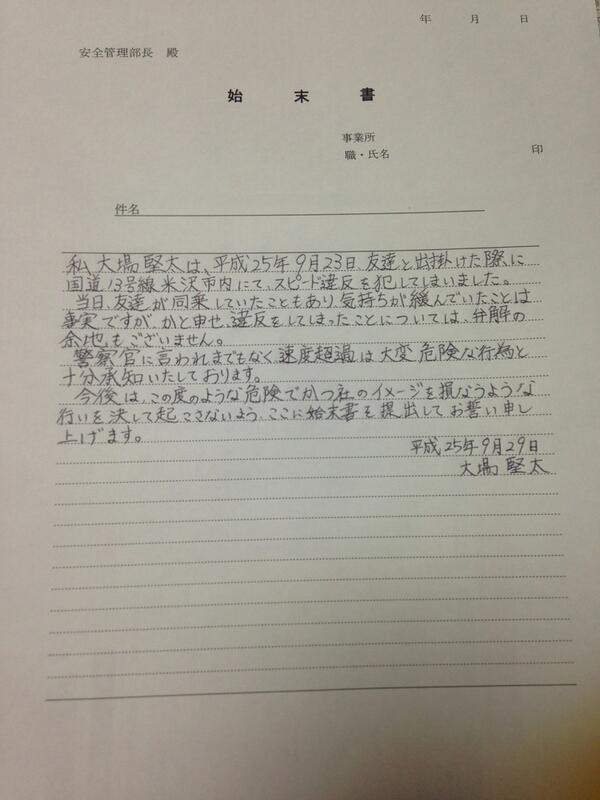 年 月 日
安全管理部長 殿
始末書
事業所
職・氏名 印
件名
私、大場堅太は、平成25年9月23日、友達と出掛けた際に
国道13号線米沢市内にて、スピード違反を犯してしまいました。
当日、友達が同乗していたこともあり、気持ちが緩んでいたことは
事実ですが、かと申せ、違反をしてしまったことについては、弁解の
余地もございません。
警察官に言われまでもなく、速度超過は大変危険な行為と
十分承知いたしております。
今後は、この度のような危険でかつ社のイメージを損なうような
行いを決して起こさないよう、ここに始末書を提出してお誓い申し
上げます。
平成25年9月29日
大場 堅太